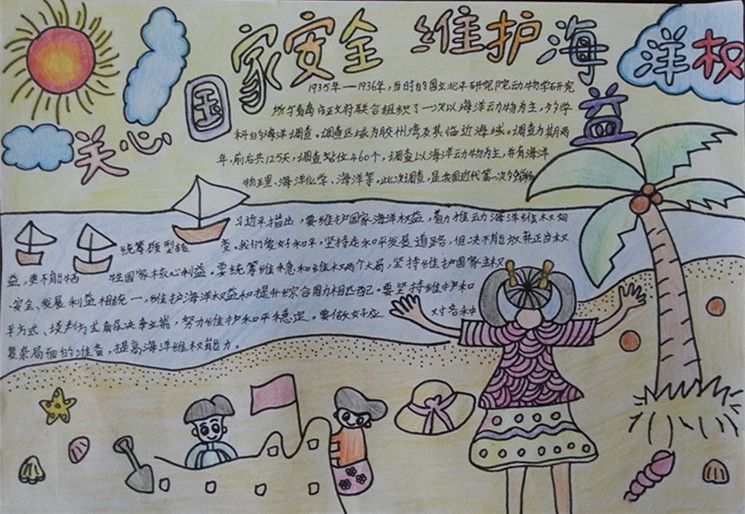 关心国家安全 维护海洋权益
1935年—1936年，当时的国立北平研究院动物学研究
所与青岛市政府联合组织了一次以海洋动物为主，多学
科的海洋调查。调查区域为胶州湾及其临近海域。调查为期两
年，前后共125天，调查站位460个，调查以海洋动物为主，并有海洋
物理、海洋化学、海洋等。此次调查，是我国近代第一次
习近平指出，要维护国家海洋权益，着力推动海洋维权向
统筹兼顾型转 变。我们爱好和平，坚持走和平发展道路，但决不能放弃正当权
益，更不能牺 牲国家核心利益。要统筹维稳和维权两个大局，坚持维护国家主权
、安全、发展利益相统一，维护海洋权益和提升综合国力相匹配。要坚持 维护和
平方式、谈判方式解决争端，努力维护和平稳定。要做好应 对各种
复杂局面的准备，提高海洋维权能力。